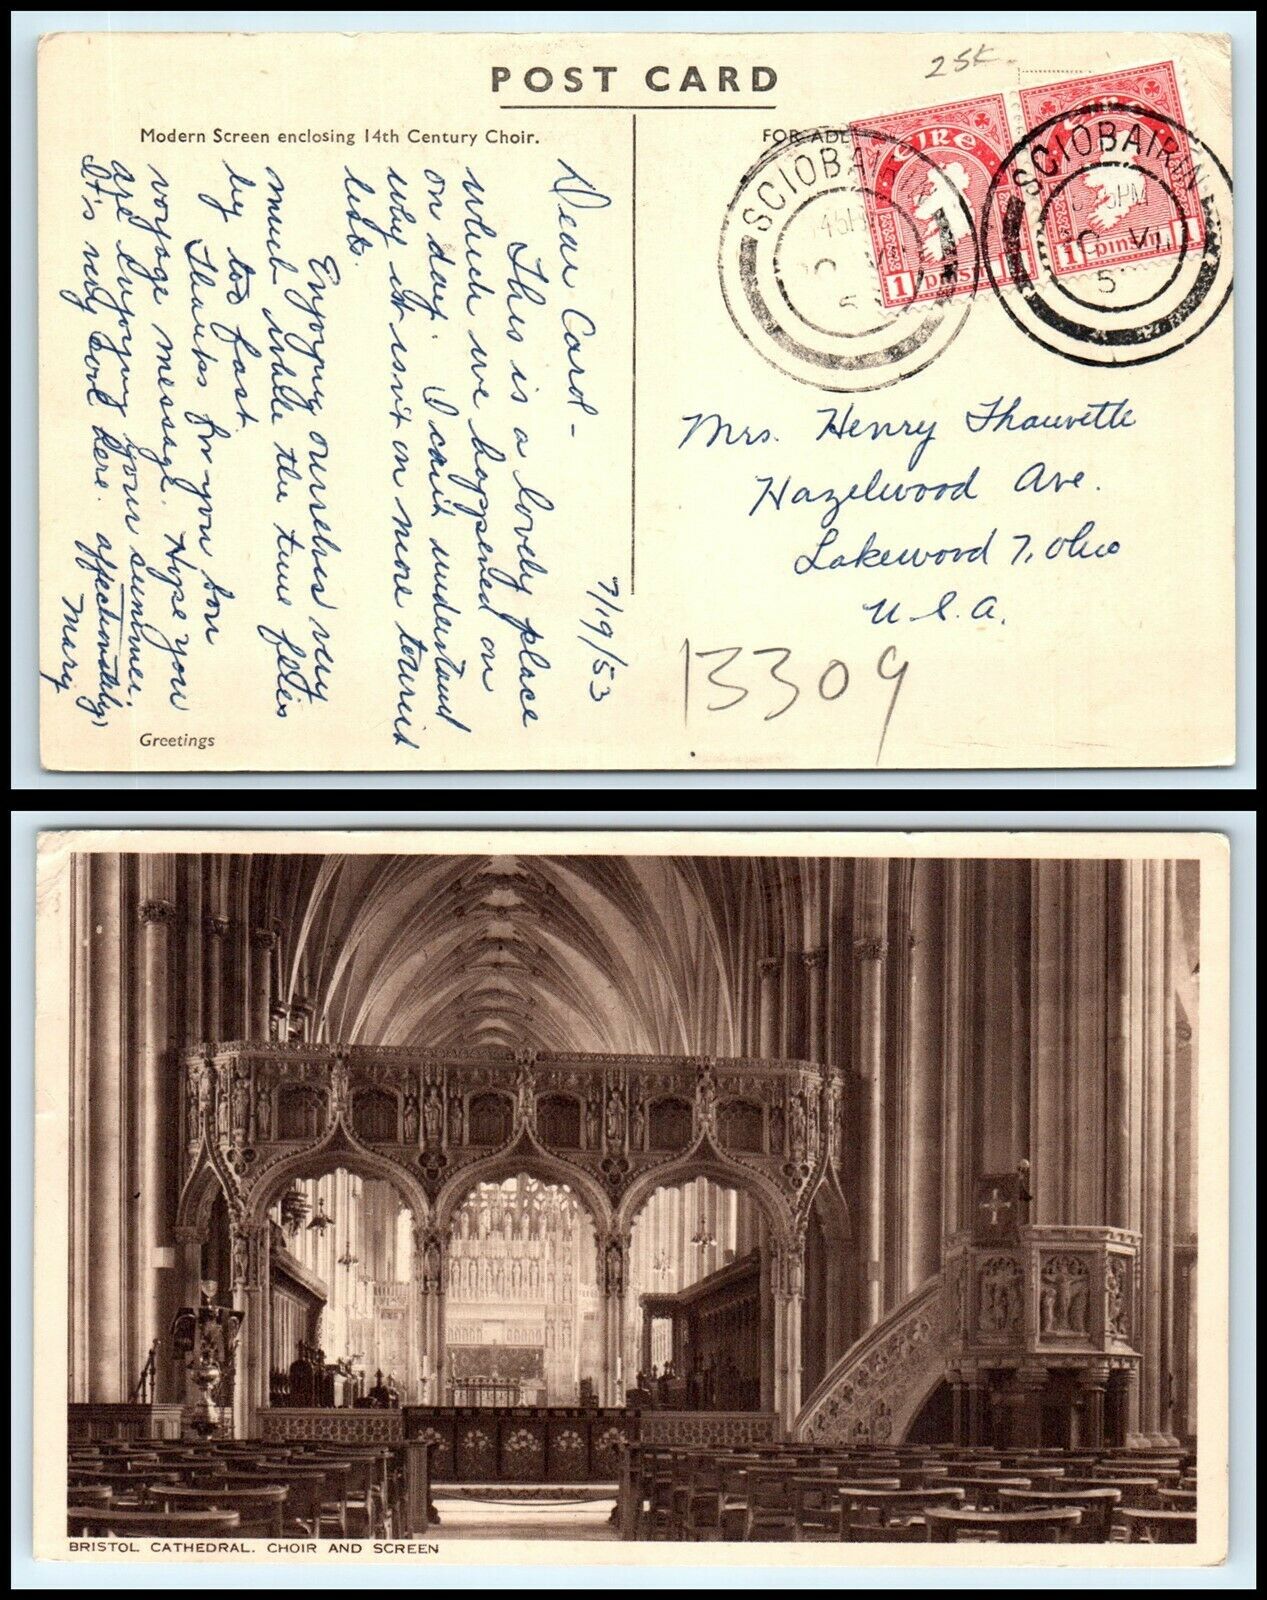 25K
POST CARD
Modern Screen enclosing 14th Century Choir.
FOR ADD
EIRE
1 pinsin 1
1 pinsin 1
SCIOBAIRIN
45P
5
SCIOBAIRIN
45PM
VII
5
7/19/53
Dear Carol -
This is a lovely place
which we happened on
on day. I can't understand
why it isn't on more tourist
lists.
Enjoying ourselves very
much while the time flies
by too fast.
Thanks for you bon
voyage message. Hope you
are enjoying your summer.
It's very cool here. affectionately,
Mary
Greetings
Mrs. Henry Thauvette
Hazelwood Ave.
Lakewood 7, Ohio
U.S.A.
13309
BRISTOL CATHEDRAL. CHOIR AND SCREEN